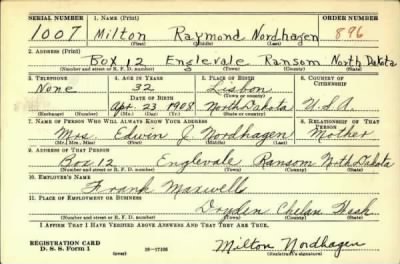 SERIAL NUMBER 1. NAME (Print) ORDER NUMBER
1007 Milton Raymond Nordhagen 896
(First) (Middle) (Last)
2. ADDRESS (Print)
Box 12 Englevale Ransom North Dakota
(Number and street or R. F. D. number) (Town) (County) (State)
3. TELEPHONE 4. AGE IN YEARS 5. PLACE OF BIRTH 6. COUNTRY OF CITIZENSHIP
None 32 Lisbon
DATE OF BIRTH (Town or county)
Apr. 23 1908 North Dakota U.S.A.
(Exchange) (Number) (Mo.) (Day) (Yr.) (State or country)
7. NAME OF PERSON WHO WILL ALWAYS KNOW YOUR ADDRESS 8. RELATIONSHIP OF THAT PERSON
Mrs. Edwin J. Nordhagen Mother
(Mr., Mrs., Miss) (First) (Middle) (Last)
9. ADDRESS OF THAT PERSON
Box 12 Englevale Ransom North Dakota
(Number and street or R. F. D. number) (Town) (County) (State)
10. EMPLOYER'S NAME
Frank Maxwells
11. PLACE OF EMPLOYMENT OR BUSINESS
Dryden Chelan Wash
(Number and street or R. F. D. number) (Town) (County) (State)
I AFFIRM THAT I HAVE VERIFIED ABOVE ANSWERS AND THAT THEY ARE TRUE.
REGISTRATION CARD
D. S. S. Form 1 (over) Milton Nordhagen
(Registrant's signature)